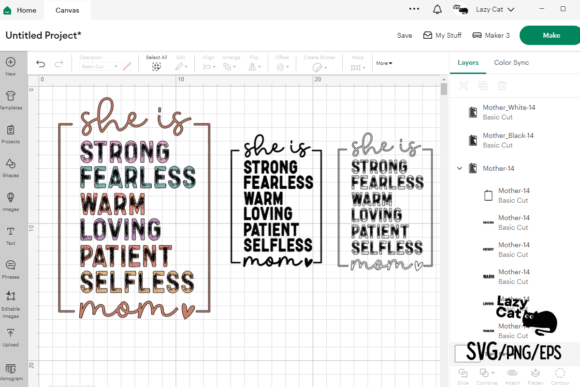 Home Canvas Lazy Cat
Untitled Project* Save My Stuff Maker 3 Make
New
Templates
Projects
Shapes
Images
Text
Phrases
Editable Images
Upload
Monogram
Operation
Basic Cut
Select All
Edit
Align
Arrange
Flip
Offset
Create Sticker
Warp
More
0 10 20
0
10
20
she is
STRONG
FEARLESS
WARM
LOVING
PATIENT
SELFLESS
mom
she is
STRONG
FEARLESS
WARM
LOVING
PATIENT
SELFLESS
mom
she is
STRONG
FEARLESS
WARM
LOVING
PATIENT
SELFLESS
mom
Layers Color Sync
Mother_White-14
Basic Cut
Mother_Black-14
Basic Cut
Mother-14
Mother-14
Basic Cut
Mother-14
Basic Cut
Mother-14
Basic Cut
Mother-14
Basic Cut
Mother-14
Lazy
Cat
Mother-14
Basic Cut
SVG/PNG/EPS
Slice Combine Attach Flatten Contour